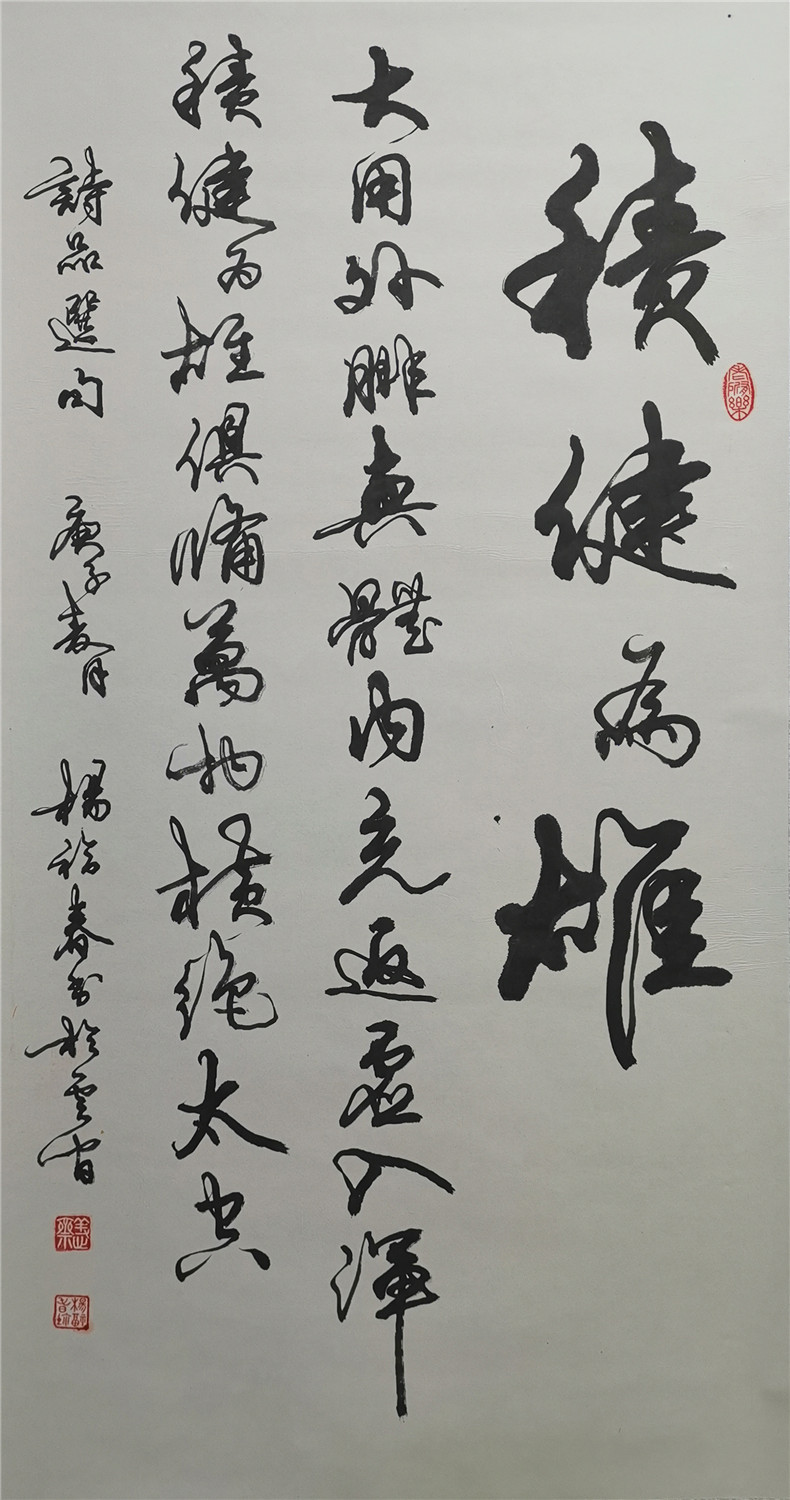 積健為雄
大用外腓真體內充返虛入渾
積健為雄俱備萬物橫絕太空
詩品選句 庚子春月 楊春書於雲間